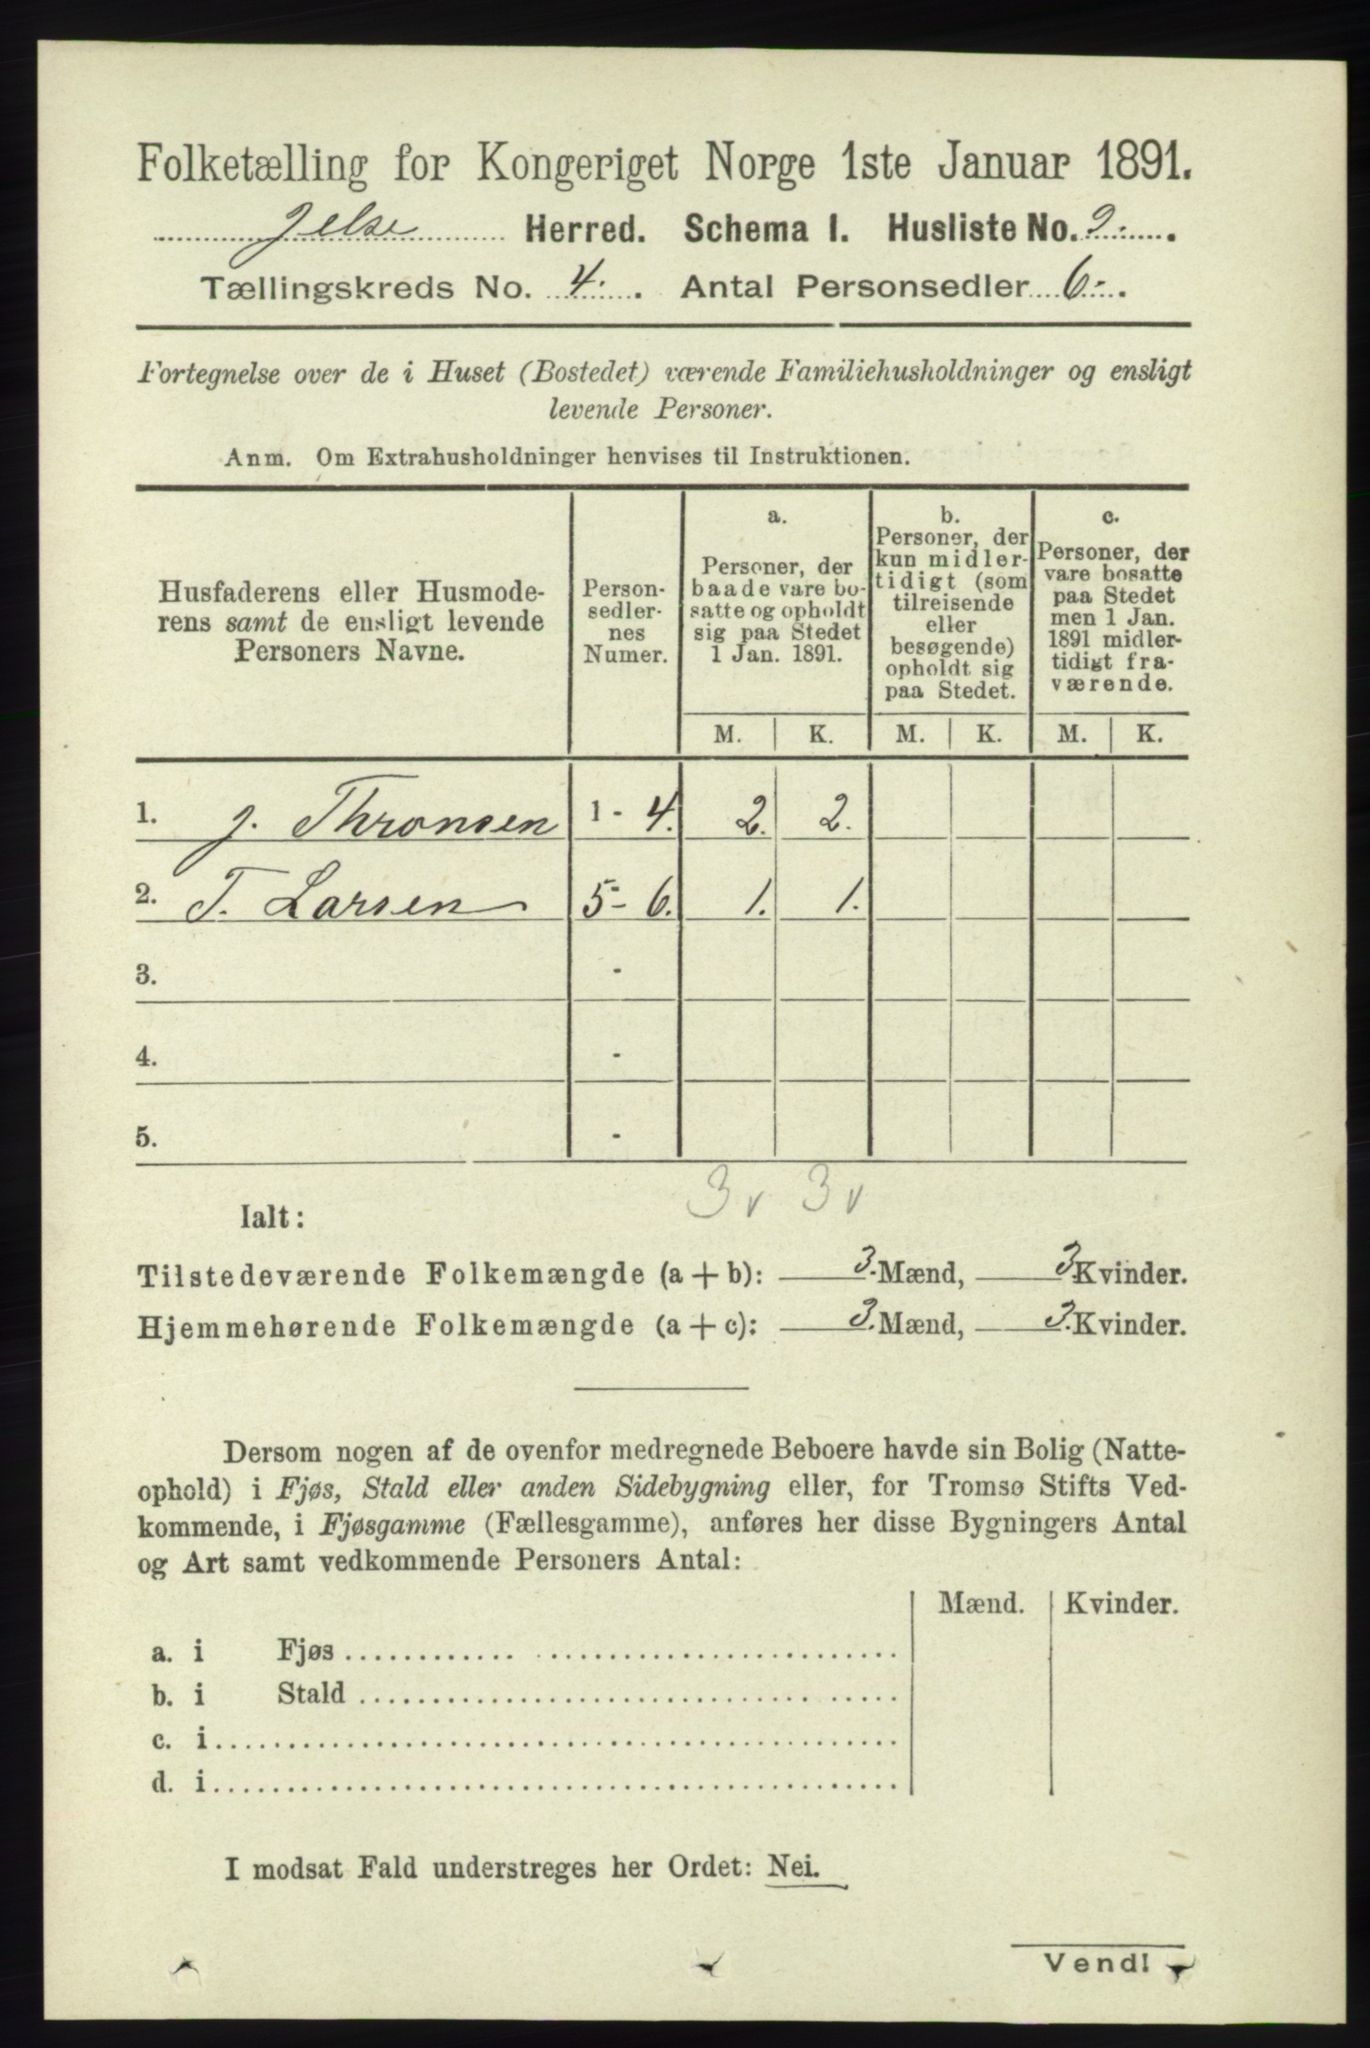 Folketælling for Kongeriget Norge 1ste Januar 1891.
Jelse Herred. Schema I. Husliste No. 2.
Tællingskreds No. 4. Antal Personsedler 6.
Fortegnelse over de i Huset (Bostedet) værende Familiehusholdninger og ensligt
levende Personer.
Anm. Om Extrahusholdninger henvises til Instruktionen.
Husfaderens eller Husmode-
rens samt de ensligt levende
Personers Navne.
Person-
sedler-
nes
Numer.
a.
Personer, der
baade vare bo-
satte og opholdt
sig paa Stedet
1 Jan. 1891.
b.
Personer, der
kun midler-
tidigt (som
tilreisende
eller
besøgende)
opholdt sig
paa Stedet.
c.
Personer, der
vare bosatte
paa Stedet
men 1 Jan.
1891 midler-
tidigt fra-
værende.
M. K. M. K. M. K.
1. J. Thronsen 1 - 4. 2. 2.
2. T. Larsen 5 - 6. 1. 1.
3. -
4. -
5. -
3 v 3 v
Ialt:
Tilstedeværende Folkemængde (a + b): 3. Mænd, 3 Kvinder.
Hjemmehørende Folkemængde (a + c): 3. Mænd, 3. Kvinder.
Dersom nogen af de ovenfor medregnede Beboere havde sin Bolig (Natte-
ophold) i Fjøs, Stald eller anden Sidebygning eller, for Tromsø Stifts Ved-
kommende, i Fjøsgamme (Fællesgamme), anføres her disse Bygningers Antal
og Art samt vedkommende Personers Antal:
Mænd. Kvinder.
a. i Fjøs
b. i Stald
c. i
d. i
I modsat Fald understreges her Ordet: Nei.
Vend!